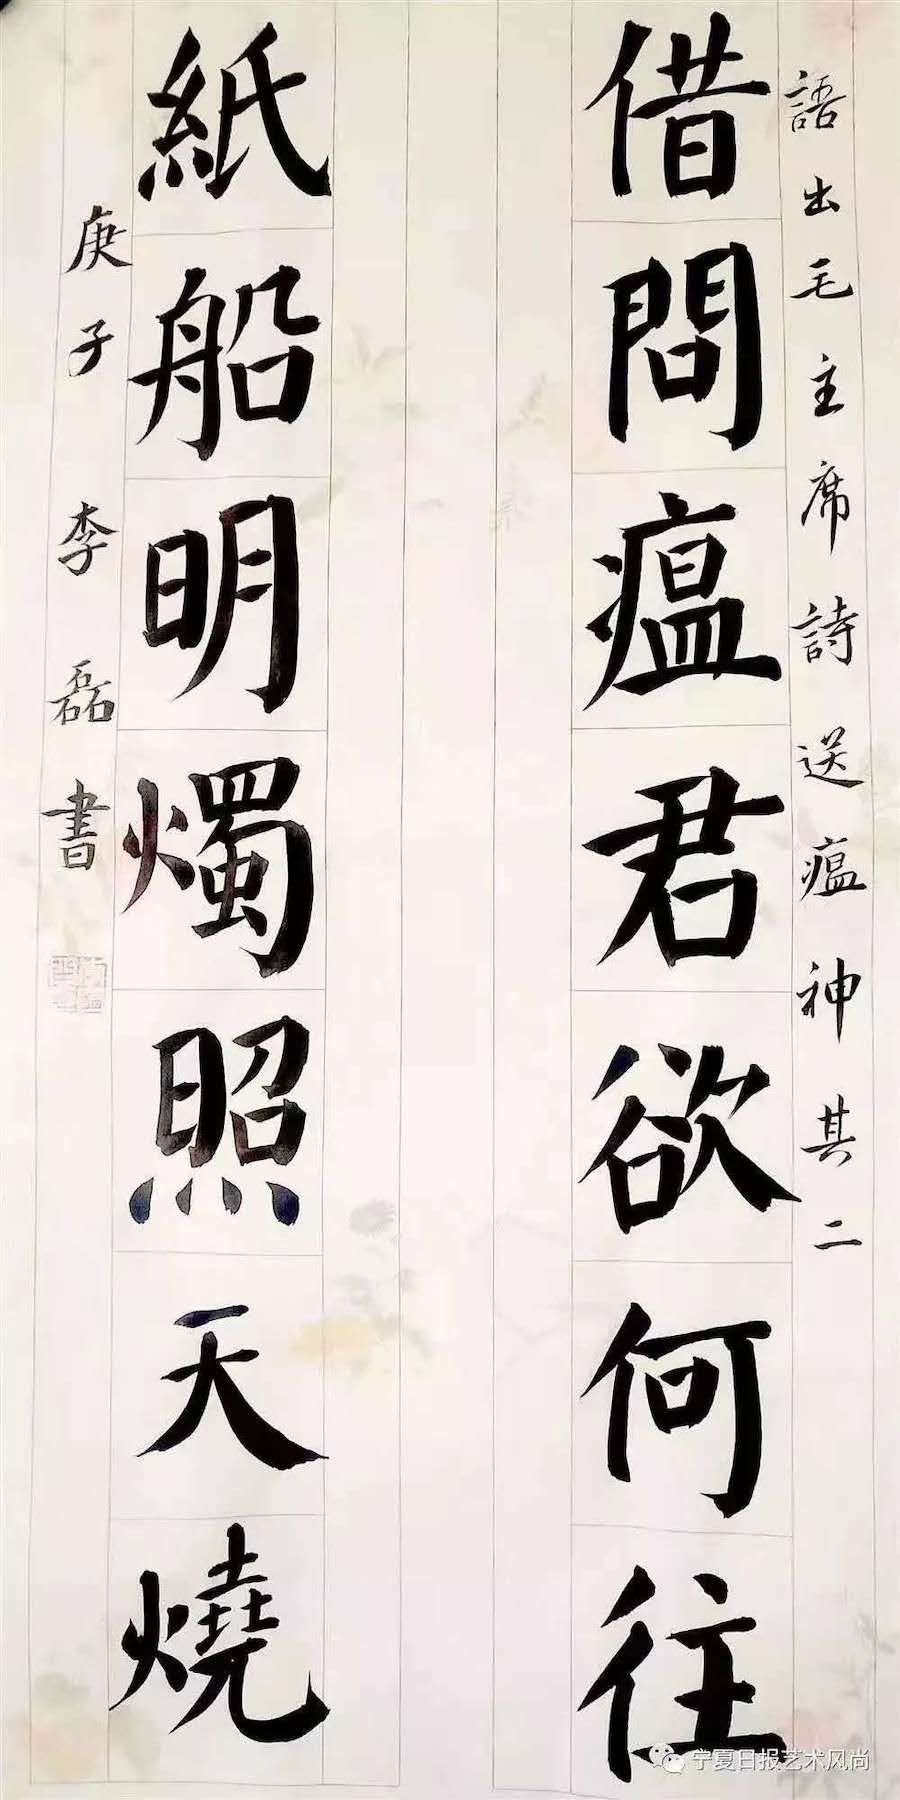 語出毛主席詩送瘟神其二
借問瘟君欲何往
紙船明燭照天燒
庚子李磊書
宁夏日报艺术风尚